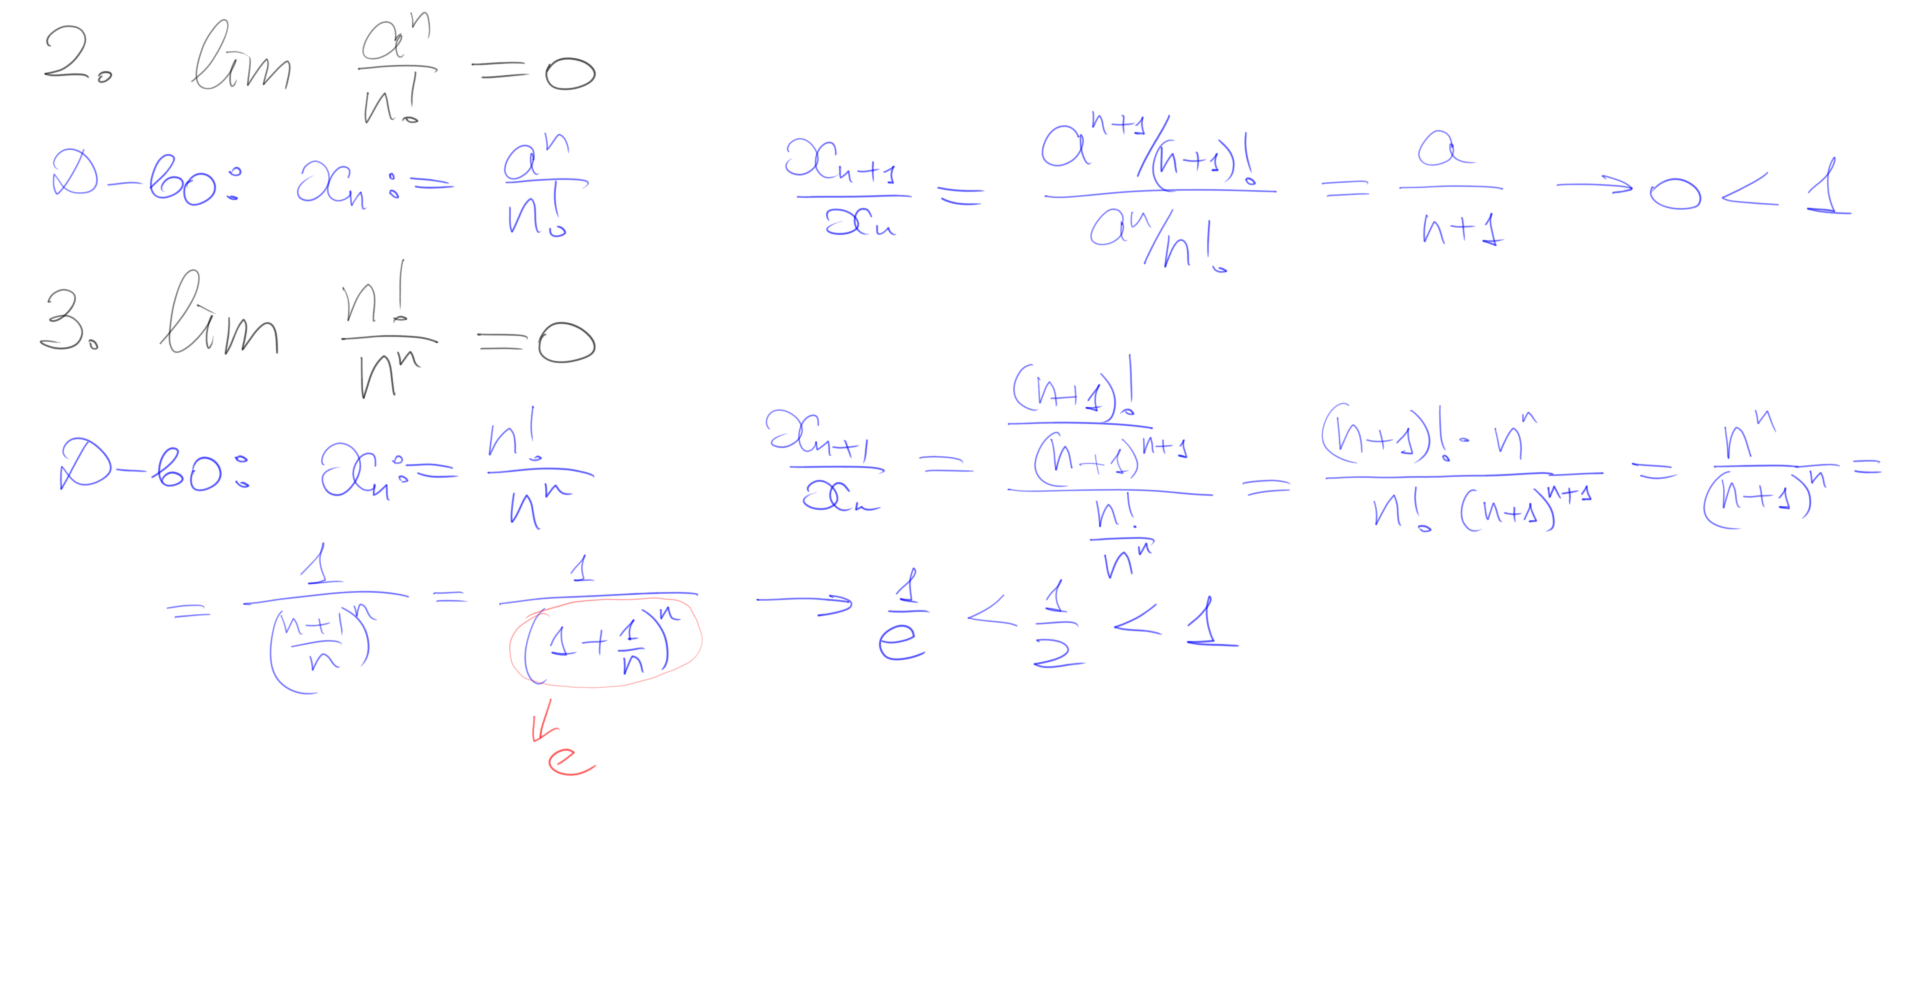 2. lim a^n/n! = 0
Д-во: x_n := a^n/n!   x_{n+1}/x_n = (a^{n+1}/(n+1)!)/(a^n/n!) = a/(n+1) → 0 < 1
3. lim n!/n^n = 0
Д-во: x_n := n!/n^n   x_{n+1}/x_n = ((n+1)!/(n+1)^{n+1})/(n!/n^n) = ((n+1)! · n^n)/(n! (n+1)^{n+1}) = n^n/(n+1)^n =
= 1/((n+1)/n)^n = 1/(1+1/n)^n → 1/e < 1/2 < 1
↓
e